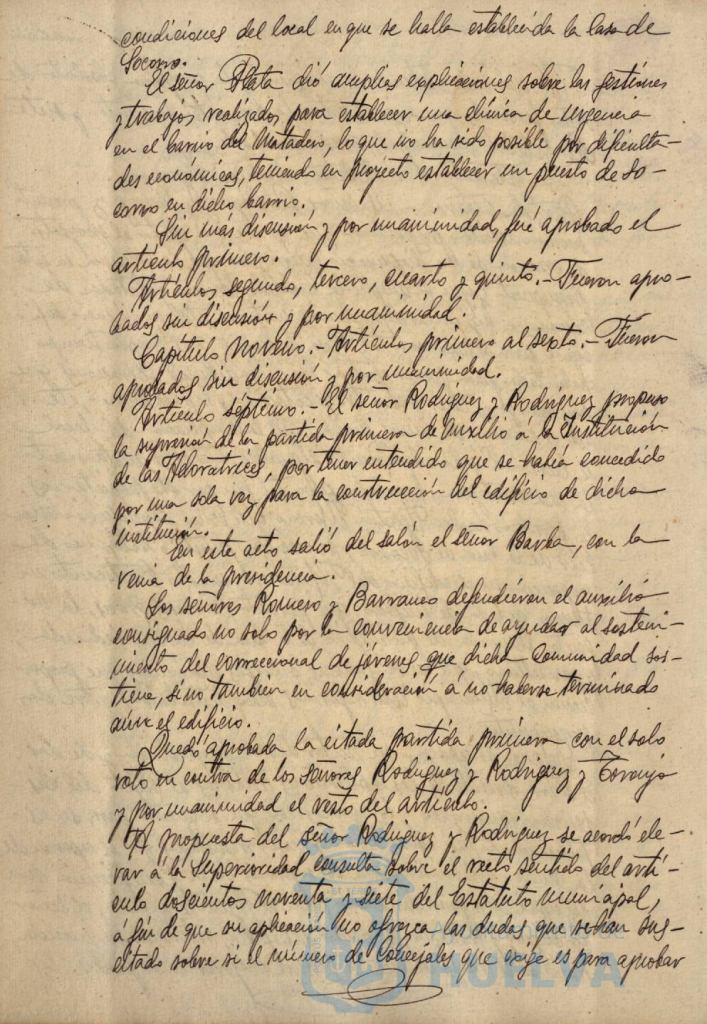 condiciones del local en que se halla establecida la Casa de
Socorro.
El señor Plata dió amplias explicaciones sobre las gestiones
y trabajos realizados para establecer una clínica de urgencia
en el barrio del Matadero, lo que no ha sido posible por dificulta-
des económicas, teniendo en proyecto establecer un puesto de So-
corro en dicho barrio.
Sin más discusión y por unanimidad, fué aprobado el
artículo primero.
Artículos segundo, tercero, cuarto y quinto.- Fueron apro-
bados sin discusión y por unanimidad.
Capítulo noveno.- Artículos primero al sexto.- Fueron
aprobados sin discusión y por unanimidad.
Artículo séptimo.- El señor Rodríguez y Rodríguez propuso
la supresión de la partida primera de Auxilio á la Institución
de las Adoratrices, por tener entendido que se había concedido
por una sola vez para la construcción del edificio de dicha
institución.
En este acto salió del salón el señor Barba, con la
venia de la presidencia.
Los señores Romero y Barranco defendieron el auxilio
consignado no solo por la conveniencia de ayudar al sosteni-
miento del correccional de jóvenes que dicha Comunidad sos-
tiene, sino también en consideración á no haberse terminado
aún el edificio.
Quedó aprobada la citada partida primera con el solo
voto en contra de los señores Rodríguez y Rodríguez y Toronjo
y por unanimidad el resto del artículo.
A propuesta del señor Rodríguez y Rodríguez se acordó ele-
var á la Superioridad consulta sobre el recto sentido del artí-
culo doscientos noventa y siete del Estatuto municipal,
á fin de que su aplicación no ofrezca las dudas que se han sus-
citado sobre si el número de Concejales que exige es para aprobar
HUELVA